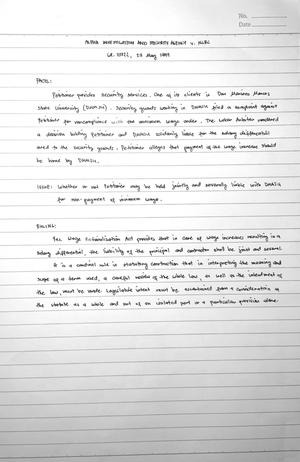 No.
Date
ALPHA INVESTIGATION AND SECURITY AGENCY v. NLRC
GR 111722, 27 May 1997
FACTS:
Petitioner provides security services. One of its clients is Don Mariano Marcos
State University (DMMSU). Security guards working in DMMSU filed a complaint against
Petitioner for noncompliance with the minimum wage order. The Labor Arbiter rendered
a decision holding Petitioner and DMMSU solidarily liable for the salary differentials
owed to the security guards. Petitioner alleges that payment of the wage increase should
be borne by DMMSU.
ISSUE: Whether or not Petitioner may be held jointly and severally liable with DMMSU
for non-payment of minimum wage.
RULING:
Yes. Wage Rationalization Act provides that in case of wage increases resulting in a
salary differential, the liability of the principal and contractor shall be joint and several.
It is a cardinal rule in statutory construction that in interpreting the meaning and
scope of a term used, a careful review of the whole law, as well as the intendment of
the law, must be made. Legislative intent must be ascertained from a consideration of
the statute as a whole and not of an isolated part or a particular provision alone.